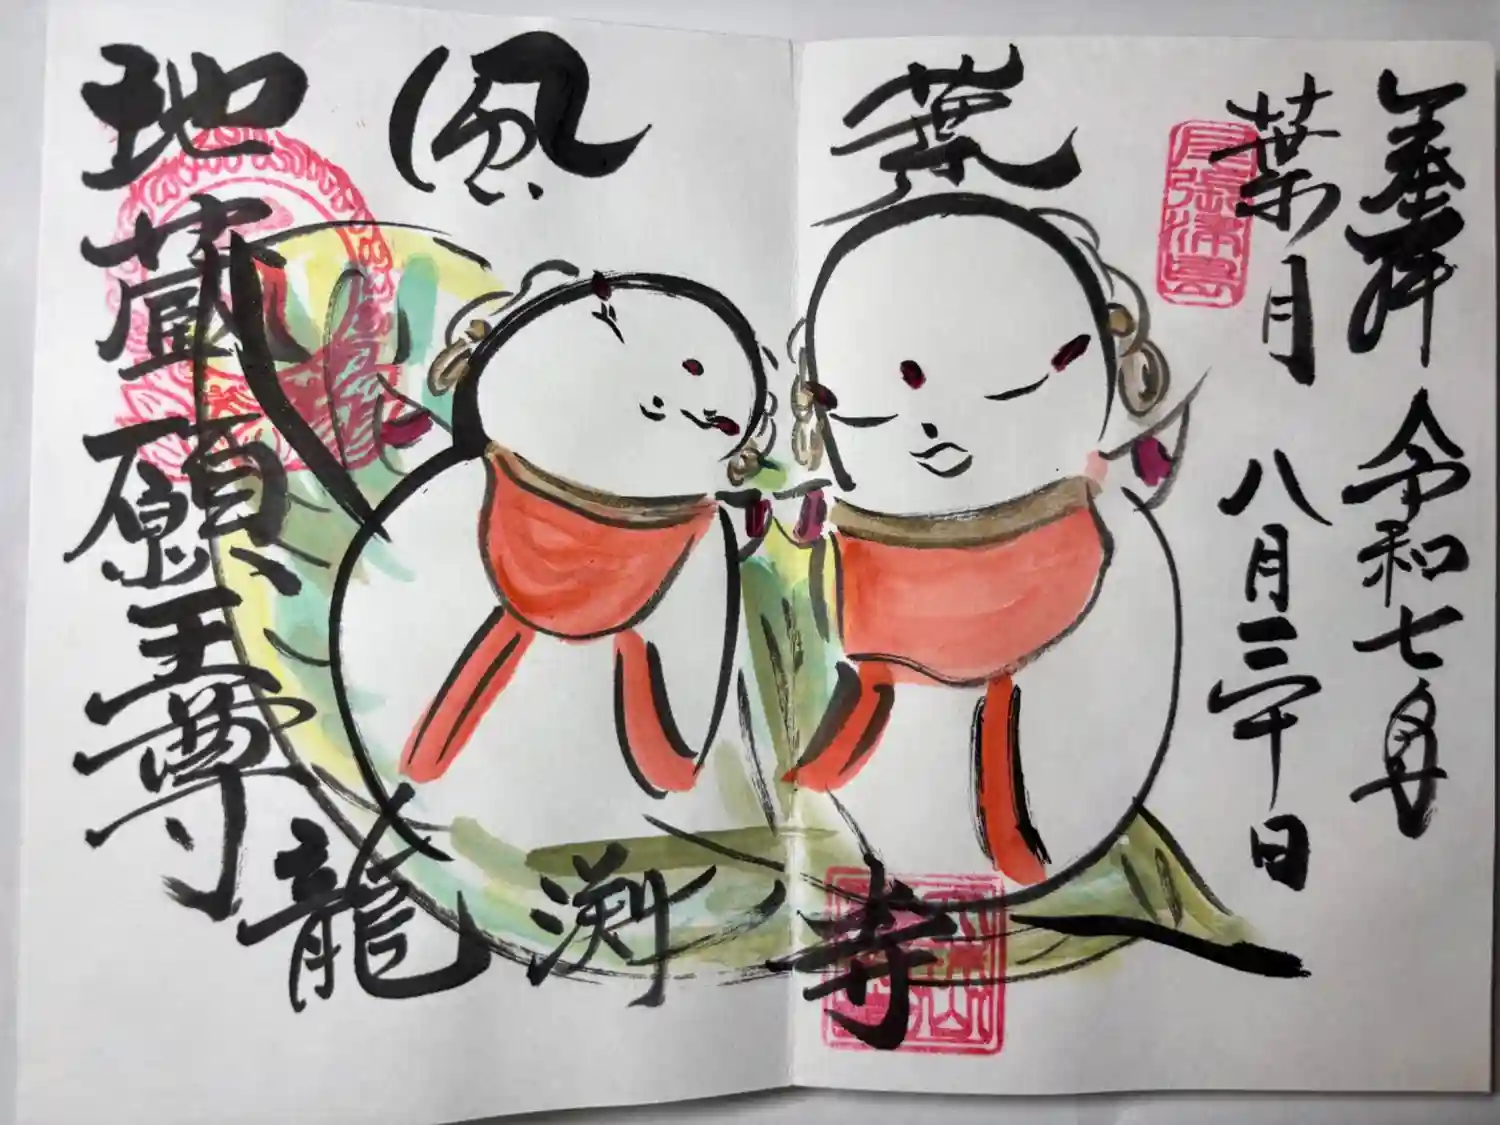 奉拝 令和七年
葉月 八月三十日
尾張津島
葉風
地蔵願王尊
龍渕寺